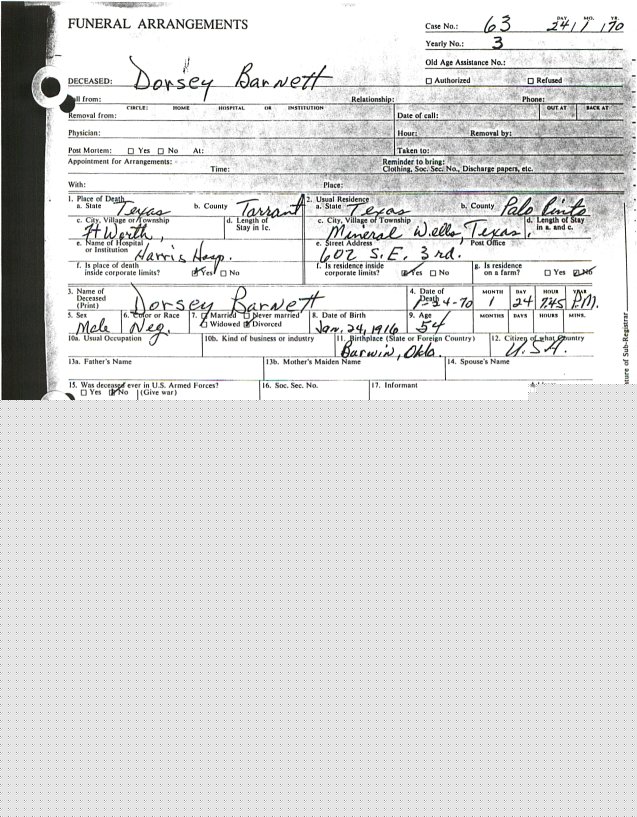 FUNERAL ARRANGEMENTS
Case No.: 63 24 1 70
DAY. MO. YR.
Yearly No.: 3
Old Age Assistance No.:
DECEASED: Dorsey Barnett
☐ Authorized ☐ Refused
ll from: Relationship: Phone:
CIRCLE: HOME HOSPITAL OR INSTITUTION OUT AT BACK AT
Removal from: Date of call:
Physician: Hour: Removal by:
Post Mortem: ☐ Yes ☐ No At: Taken to:
Appointment for Arrangements: Reminder to bring:
Time: Clothing, Soc. Sec. No., Discharge papers, etc.
With: Place:
1. Place of Death 2. Usual Residence
a. State Texas b. County Tarrant a. State Texas b. County Palo Pinto
c. City, Village or Township d. Length of Stay in 1c. c. City, Village of Township d. Length of Stay in a. and c.
Ft Worth, Mineral Wells, Texas,
e. Name of Hospital or Institution Harris Hosp. e. Street Address 602 S.E. 3rd. Post Office
f. Is place of death inside corporate limits? ☑ Yes ☐ No f. Is residence inside corporate limits? ☑ Yes ☐ No g. Is residence on a farm? ☐ Yes ☑ No
3. Name of Deceased (Print) Dorsey Barnett 4. Date of Death 1-24-70 MONTH 1 DAY 24 HOUR 7:45 YEAR P.M.
5. Sex 6. Color or Race 7. ☐ Married ☐ Never married 8. Date of Birth 9. Age MONTHS DAYS HOURS MINS.
Male Neg. ☐ Widowed ☑ Divorced Jan. 24, 1916 54
10a. Usual Occupation 10b. Kind of business or industry 11. Birthplace (State or Foreign Country) 12. Citizen of what Country
Barwin, Okla. U.S.A.
13a. Father's Name 13b. Mother's Maiden Name 14. Spouse's Name
15. Was deceased ever in U.S. Armed Forces? 16. Soc. Sec. No. 17. Informant
☐ Yes ☑ No (Give war)
ature of Sub-Registrar